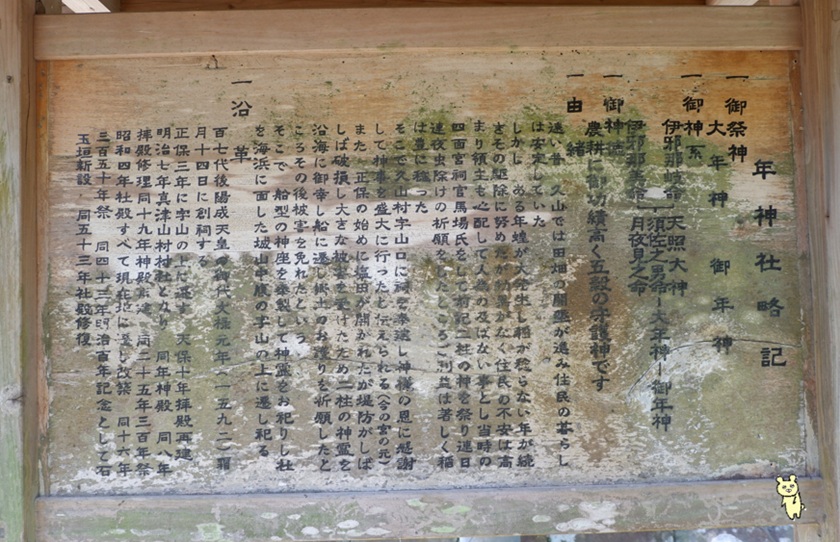 年神社略記
一 御祭神
大年神 御年神
一 御神系
伊邪那岐命 天照大神
須佐之男命ー大年神ー御年神
伊邪那美命 月夜見之命
一 御神徳
農耕に御功績高く五穀の守護神です
一 由緒
遠い昔 久山では田畑の開墾が進み住民の暮らし
は安定していた
しかし ある年蝗が大発生し稲が稔らない年が続
きその駆除に努めたが効果がなく住民の不安は高
まり領主も心配して人為の及ばない事とし当時の
四面宮祠官馬場氏をして前記二柱の神を祭り連日
連夜虫除けの祈願をしたところご利益は著しく稲
は豊に稔った
そこで久山村字山口に祠を奉建し神様の恩に感謝
して神事を盛大に行ったと伝えられる(今の宮の元)
また 正保の始めに塩田が開かれたが堤防がしば
しば破損し大きな被害を受けたため二柱の神霊を
沿海に御幸し船に遷し郷土のお護りを祈願したと
ころその後被害を免れたという
そこで 船型の神座を奉製して神霊をお祀りし社
を海浜に面した城山中腹の字山の上に遷し祀る
一 沿革
百七代後陽成天皇の御代文禄元年(一五九二)霜
月十四日に創祠する
正保三年に字山の上に遷す 天保十年拝殿再建
明治七年真津山村村社となり 同年神殿 同八年
拝殿修理同十九年神殿 同二十五年三百年祭
昭和四年社殿すべて現在地に遷し改築 同十六年
三百五十年祭 同四十三年明治百年記念として石
玉垣新設 同五十三年社殿修復